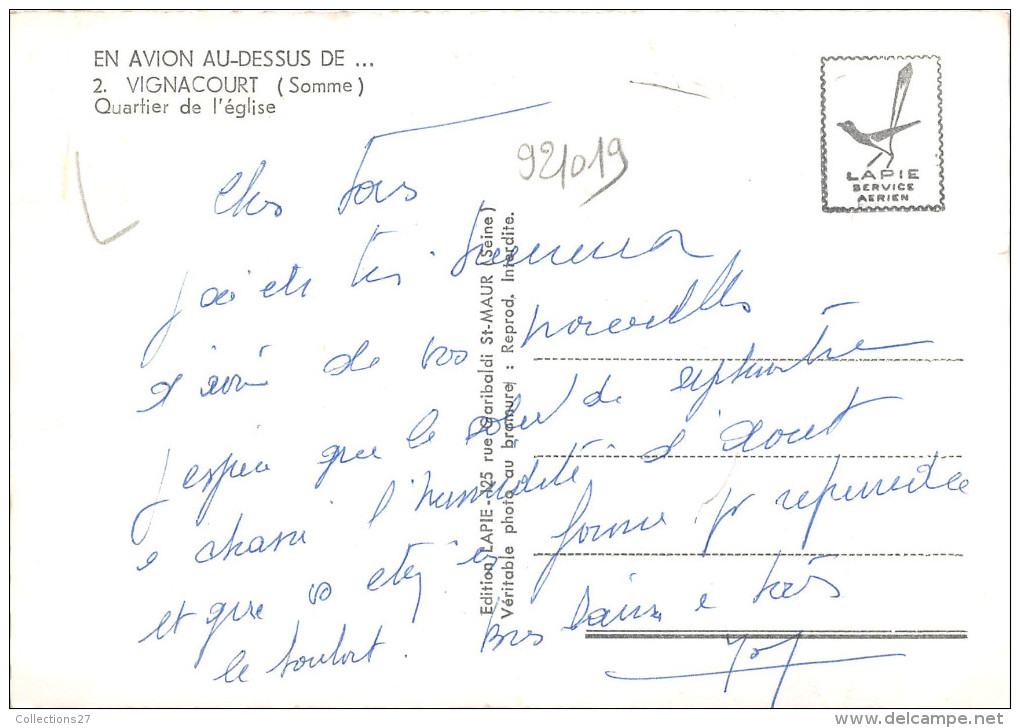 EN AVION AU-DESSUS DE ...
2. VIGNACOURT (Somme)
Quartier de l'église
LAPIE
SERVICE
AERIEN
92/019
Edition LAPIE - 125 rue Garibaldi St-MAUR (Seine)
Véritable photo au bromure : Reprod. Interdite.
Chers tous
j'ai été très heureux
d'avoir de vos nouvelles
j'espère que le soleil de septembre
a chassé l'humidité d'Aout
et que vs etes en forme pr reprendre
le boulot. Bons baisers a tous
Collections27
delcampe.net